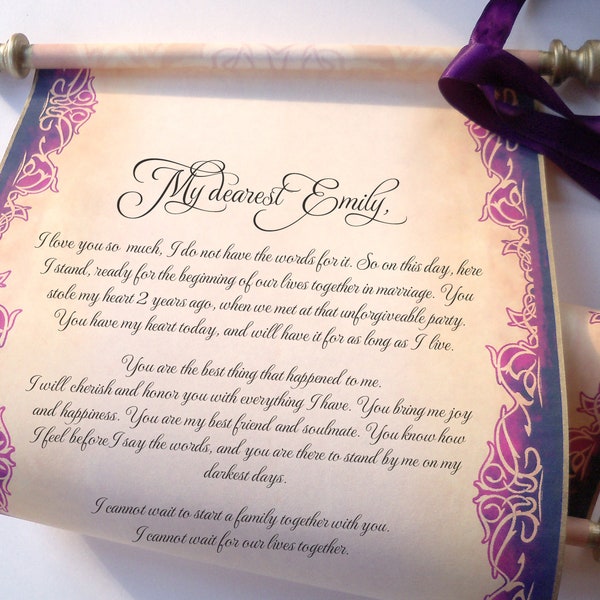 My dearest Emily,
I love you so much, I do not have the words for it. So on this day, here
I stand, ready for the beginning of our lives together in marriage. You
stole my heart 2 years ago, when we met at that unforgiveable party.
You have my heart today, and will have it for as long as I live.
You are the best thing that happened to me.
I will cherish and honor you with everything I have. You bring me joy
and happiness. You are my best friend and soulmate. You know how
I feel before I say the words, and you are there to stand by me on my
darkest days.
I cannot wait to start a family together with you.
I cannot wait for our lives together.